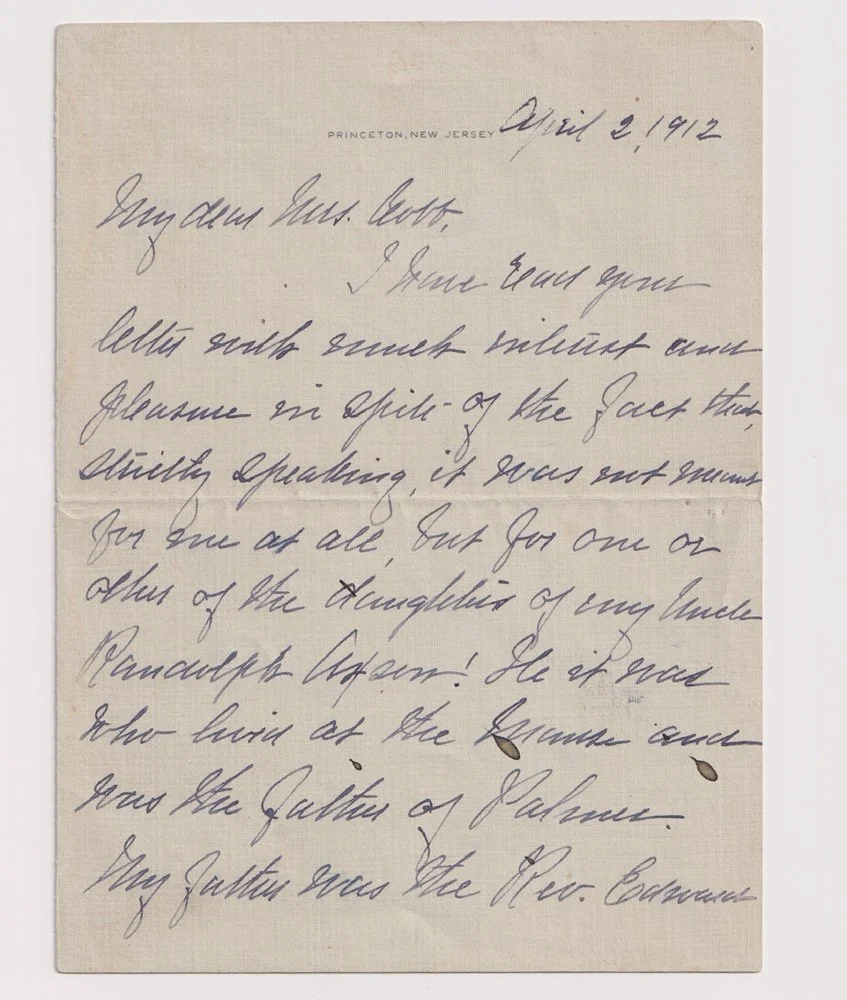 PRINCETON, NEW JERSEY April 2, 1912
My dear Mrs. Cobb,
I have read your
letter with much interest and
pleasure in spite of the fact that,
strictly speaking, it was not meant
for me at all, but for one or
other of the daughters of my Uncle
Randolph Axson! He it was
who lived at the Manse and
was the father of Palmer.
My father was the Rev. Edward